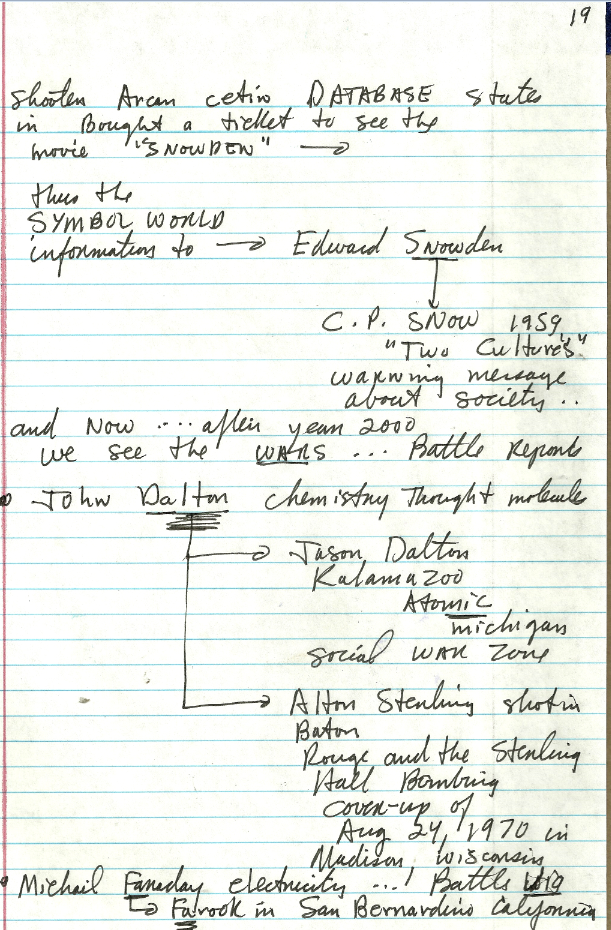 19
Shooter Arcan cetin DATABASE states
in Bought a ticket to see the
movie "SNOWDEN" →
thus the
SYMBOL WORLD
information to → Edward Snowden
C.P. SNOW 1959
"Two Culture's"
warning message
about society ..
and Now .... after year 2000
we see the WARS ... Battle Reports
John Dalton chemistry Thought molecule
Jason Dalton
Kalamazoo
Atomic
michigan
social WAR Zone
Alton Sterling shot in
Baton
Rouge and the Sterling
Hall Bombing
cover-up of
Aug 24, 1970 in
Madison Wisconsin
Michail Faraday electricity ...! Battle
→ Farook in San Bernardino California